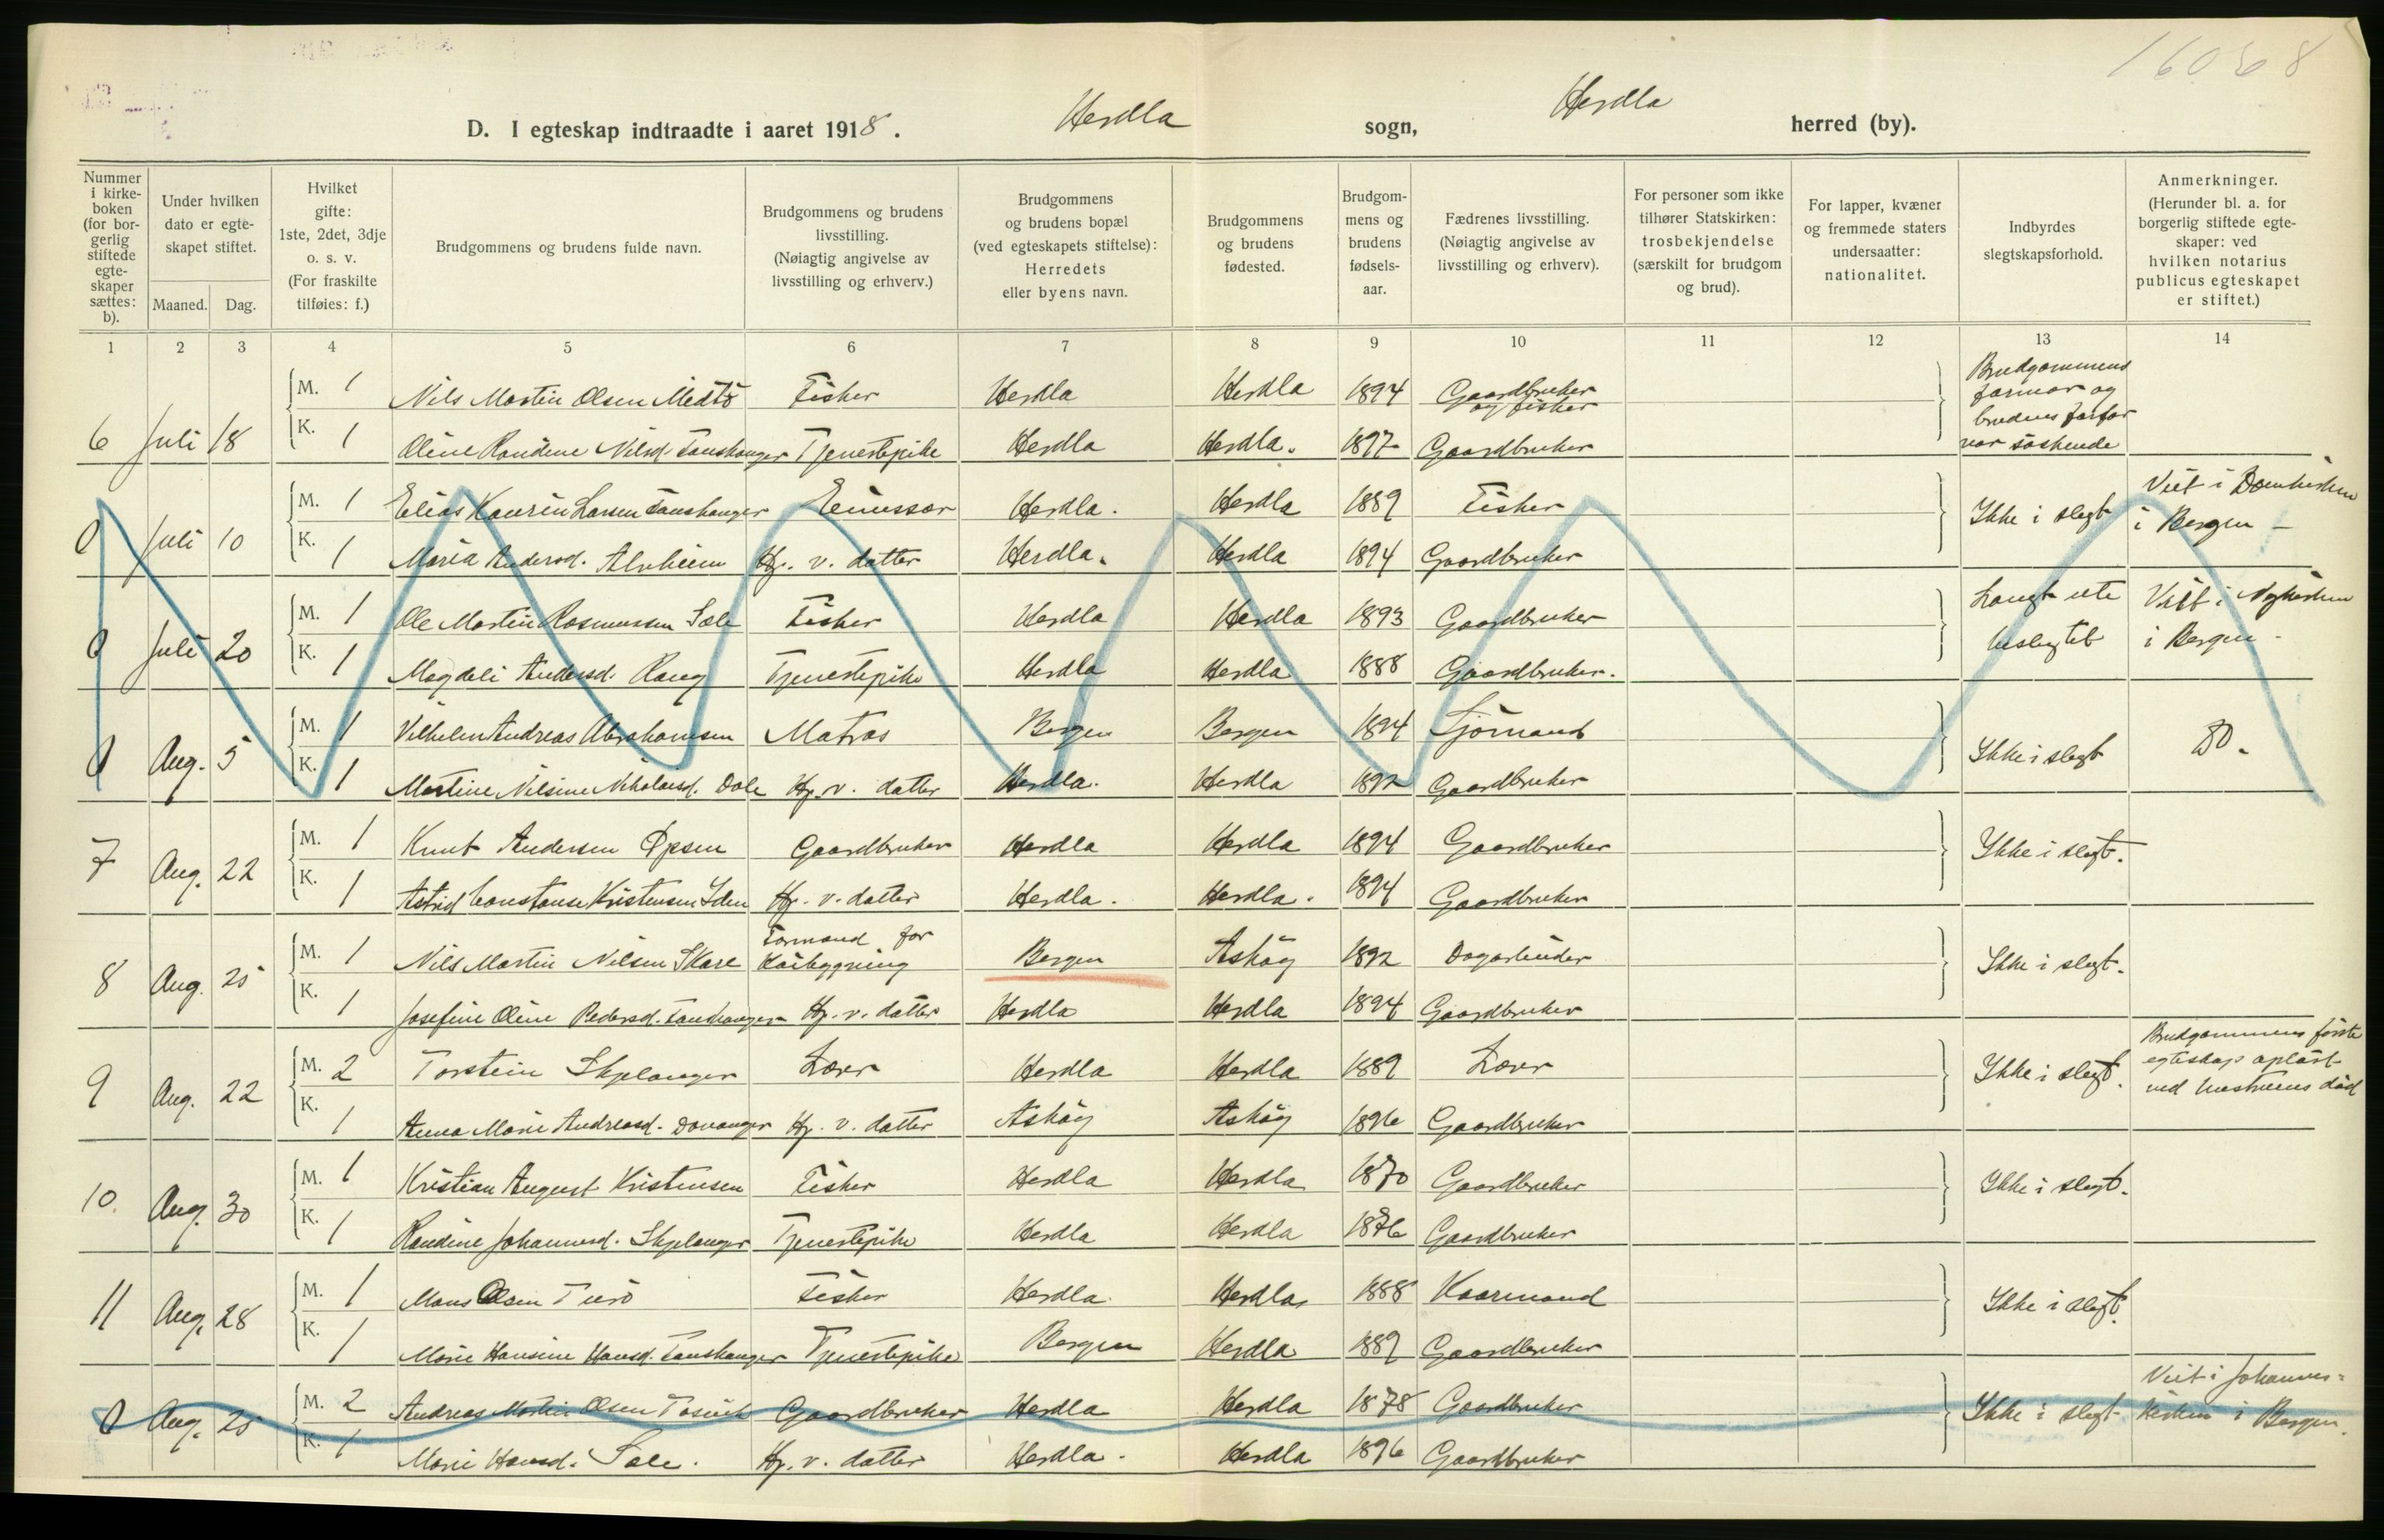 16068
D. I egteskap indtraadte i aaret 1918. Herdla sogn, Herdla herred (by).
Nummer i kirkeboken (for borgerlig stiftede egteskaper sættes: b).
Under hvilken dato er egteskapet stiftet.
Maaned. Dag.
Hvilket gifte: 1ste, 2det, 3dje o. s. v. (For fraskilte tilføies: f.)
Brudgommens og brudens fulde navn.
Brudgommens og brudens livsstilling. (Nøiagtig angivelse av livsstilling og erhverv.)
Brudgommens og brudens bopæl (ved egteskapets stiftelse): Herredets eller byens navn.
Brudgommens og brudens fødested.
Brudgommens og brudens fødselsaar.
Fædrenes livsstilling. (Nøiagtig angivelse av livsstilling og erhverv).
For personer som ikke tilhører Statskirken: trosbekjendelse (særskilt for brudgom og brud).
For lapper, kvæner og fremmede staters undersaatter: nationalitet.
Indbyrdes slegtskapsforhold.
Anmerkninger. (Herunder bl. a. for borgerlig stiftede egteskaper: ved hvilken notarius publicus egteskapet er stiftet.)
1 2 3 4 5 6 7 8 9 10 11 12 13 14
M. 1 Nils Martin Olsen Midtö Fisker Herdla Herdla 1894 Gaardbruker og fisker Brudgommens farmor og brudens farfar var söskende
6 Juli 18 K. 1 Oline Randine Nilsd. Fauskanger Tjenestepike Herdla Herdla. 1897 Gaardbruker
M. 1 Elias Kaurin Larsen Fauskanger Herdla. Herdla 1889 Fisker Ikke i slegt Viet i Domkirken i Bergen –
0 Juli 10 K. 1 Maria Andersd. Alvheim Hj. v. datter Herdla. Herdla 1894 Gaardbruker
M. 1 Ole Martin Rasmussen Sæle Fisker Herdla Herdla 1893 Gaardbruker Langt ute beslegtet Viet i Nykirken i Bergen -
0 Juli 20 K. 1 Magdeli Andersd. Rong Tjenestepike Herdla Herdla 1888 Gaardbruker.
M. 1 Vilhelm Andreas Abrahamsen Matros Bergen Bergen 1894 Sjömand Ikke i slegt DO.
0 Aug. 5 K. 1 Martine Nilsine Nikolaisd. Dale Hj. v. datter Herdla. Herdla 1892 Gaardbruker
M. 1 Knut Andersen Öpsen Gaardbruker Herdla Herdla 1894 Gaardbruker Ikke i slegt.
7 Aug. 22 K. 1 Astrid Constanse Kristensen Iden Hj. v. datter Herdla. Herdla. 1894 Gaardbruker
M. 1 Nils Martin Nilsen Skare Formand for Bergen Asköy 1892 Dagarbeider Ikke i slegt.
8 Aug. 25 K. 1 Josefine Oline Pedersd. Fauskanger Hj. v. datter Herdla Herdla 1894 Gaardbruker
M. 2 Torstein Skjelanger Lærer Herdla Herdla 1889 Lærer Ikke i slegt. Brudgommens förste egteskap oplöst ved hustruens död
9 Aug. 22 K. 1 Anna Marie Andreasd. Davanger Hj. v. datter Asköy Asköy 1896 Gaardbruker
M. 1 Kristian August Kristensen Fisker Herdla Herdla 1870 Gaardbruker Ikke i slegt.
10. Aug. 30 K. 1 Randine Johannesd. Skjelanger Tjenestepike Herdla Herdla 1876 Gaardbruker
M. 1 Mons Olsen Turö Fisker Herdla. Herdla 1888 Kaarmand Ikke i slegt.
11 Aug. 28 K. 1 Marie Hansine Hansd. Fauskanger Tjenestepike Bergen Herdla 1889 Gaardbruker
M. 2 Andreas Martin Olsen Gaardbruker Herdla Herdla 1878 Gaardbruker Ikke i slegt Viet i Johanneskirken i Bergen.
0 Aug. 25 K. 1 Marie Hansd. Sæle. Hj. v. datter Herdla. Herdla 1896 Gaardbruker